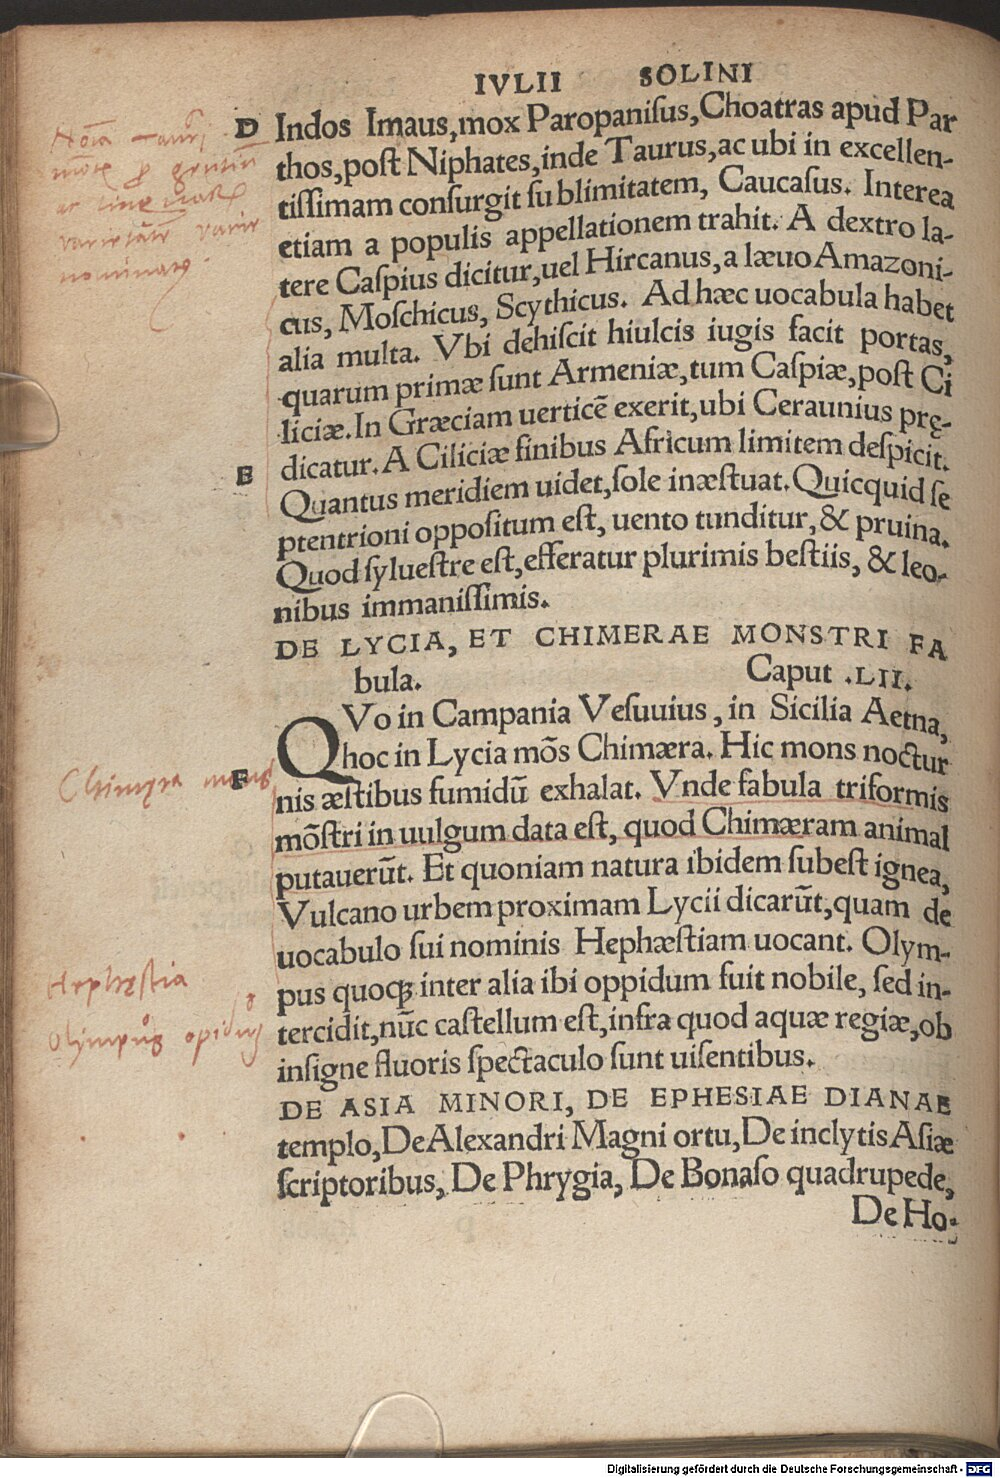 IVLII SOLINI
D Indos Imaus,mox Paropaniſus,Choatras apud Par
thos,poſt Niphates,inde Taurus,ac ubi in excellen-
tiſſimam conſurgit ſublimitatem, Caucaſus. Interea
etiam a populis appellationem trahit. A dextro la-
tere Caſpius dicitur,uel Hircanus,a læuo Amazoni-
cus, Moſchicus, Scythicus. Ad hæc uocabula habet
alia multa. Vbi dehiſcit hiulcis iugis facit portas,
quarum primæ ſunt Armeniæ,tum Caſpiæ,poſt Ci
liciæ.In Græciam uerticē exerit,ubi Ceraunius prę-
dicatur.A Ciliciæ finibus Africum limitem deſpicit.
E Quantus meridiem uidet,ſole inæſtuat.Quicquid ſe
ptentrioni oppoſitum eſt, uento tunditur, & pruina.
Quod ſylueſtre eſt,efferatur plurimis beſtiis, & leo-
nibus immaniſſimis.
DE LYCIA, ET CHIMERAE MONSTRI FA
bula. Caput .LII.
QVo in Campania Veſuuius, in Sicilia Aetna,
hoc in Lycia mōs Chimæra. Hic mons noctur
Chimęra mons
F nis æſtibus fumidū exhalat. Vnde fabula triformis
mōſtri in uulgum data eſt, quod Chimæram animal
putauerūt. Et quoniam natura ibidem ſubeſt ignea,
Vulcano urbem proximam Lycii dicarūt,quam de
uocabulo ſui nominis Hephæſtiam uocant. Olym-
Hephęſtia
pus quoqꝫ inter alia ibi oppidum fuit nobile, ſed in-
tercidit,nūc caſtellum eſt,infra quod aquæ regiæ,ob
inſigne fluoris ſpectaculo ſunt uiſentibus.
DE ASIA MINORI, DE EPHESIAE DIANAE
templo,De Alexandri Magni ortu,De inclytis Aſiæ
ſcriptoribus, De Phrygia, De Bonaſo quadrupede,
De Ho-
Digitalisierung gefördert durch die Deutsche Forschungsgemeinschaft - DFG